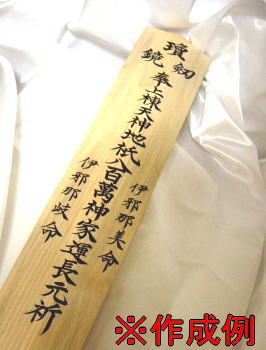 瓊
剱
鏡
奉上棟天神地祇八百萬神家運長元祈
伊邪那美命
伊邪那岐命
※作成例